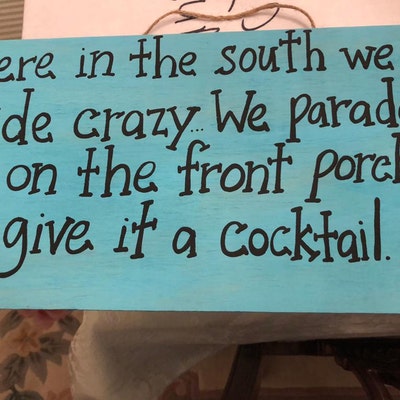 ere in the south we
de crazy... We parad
on the front porch
give it a cocktail.